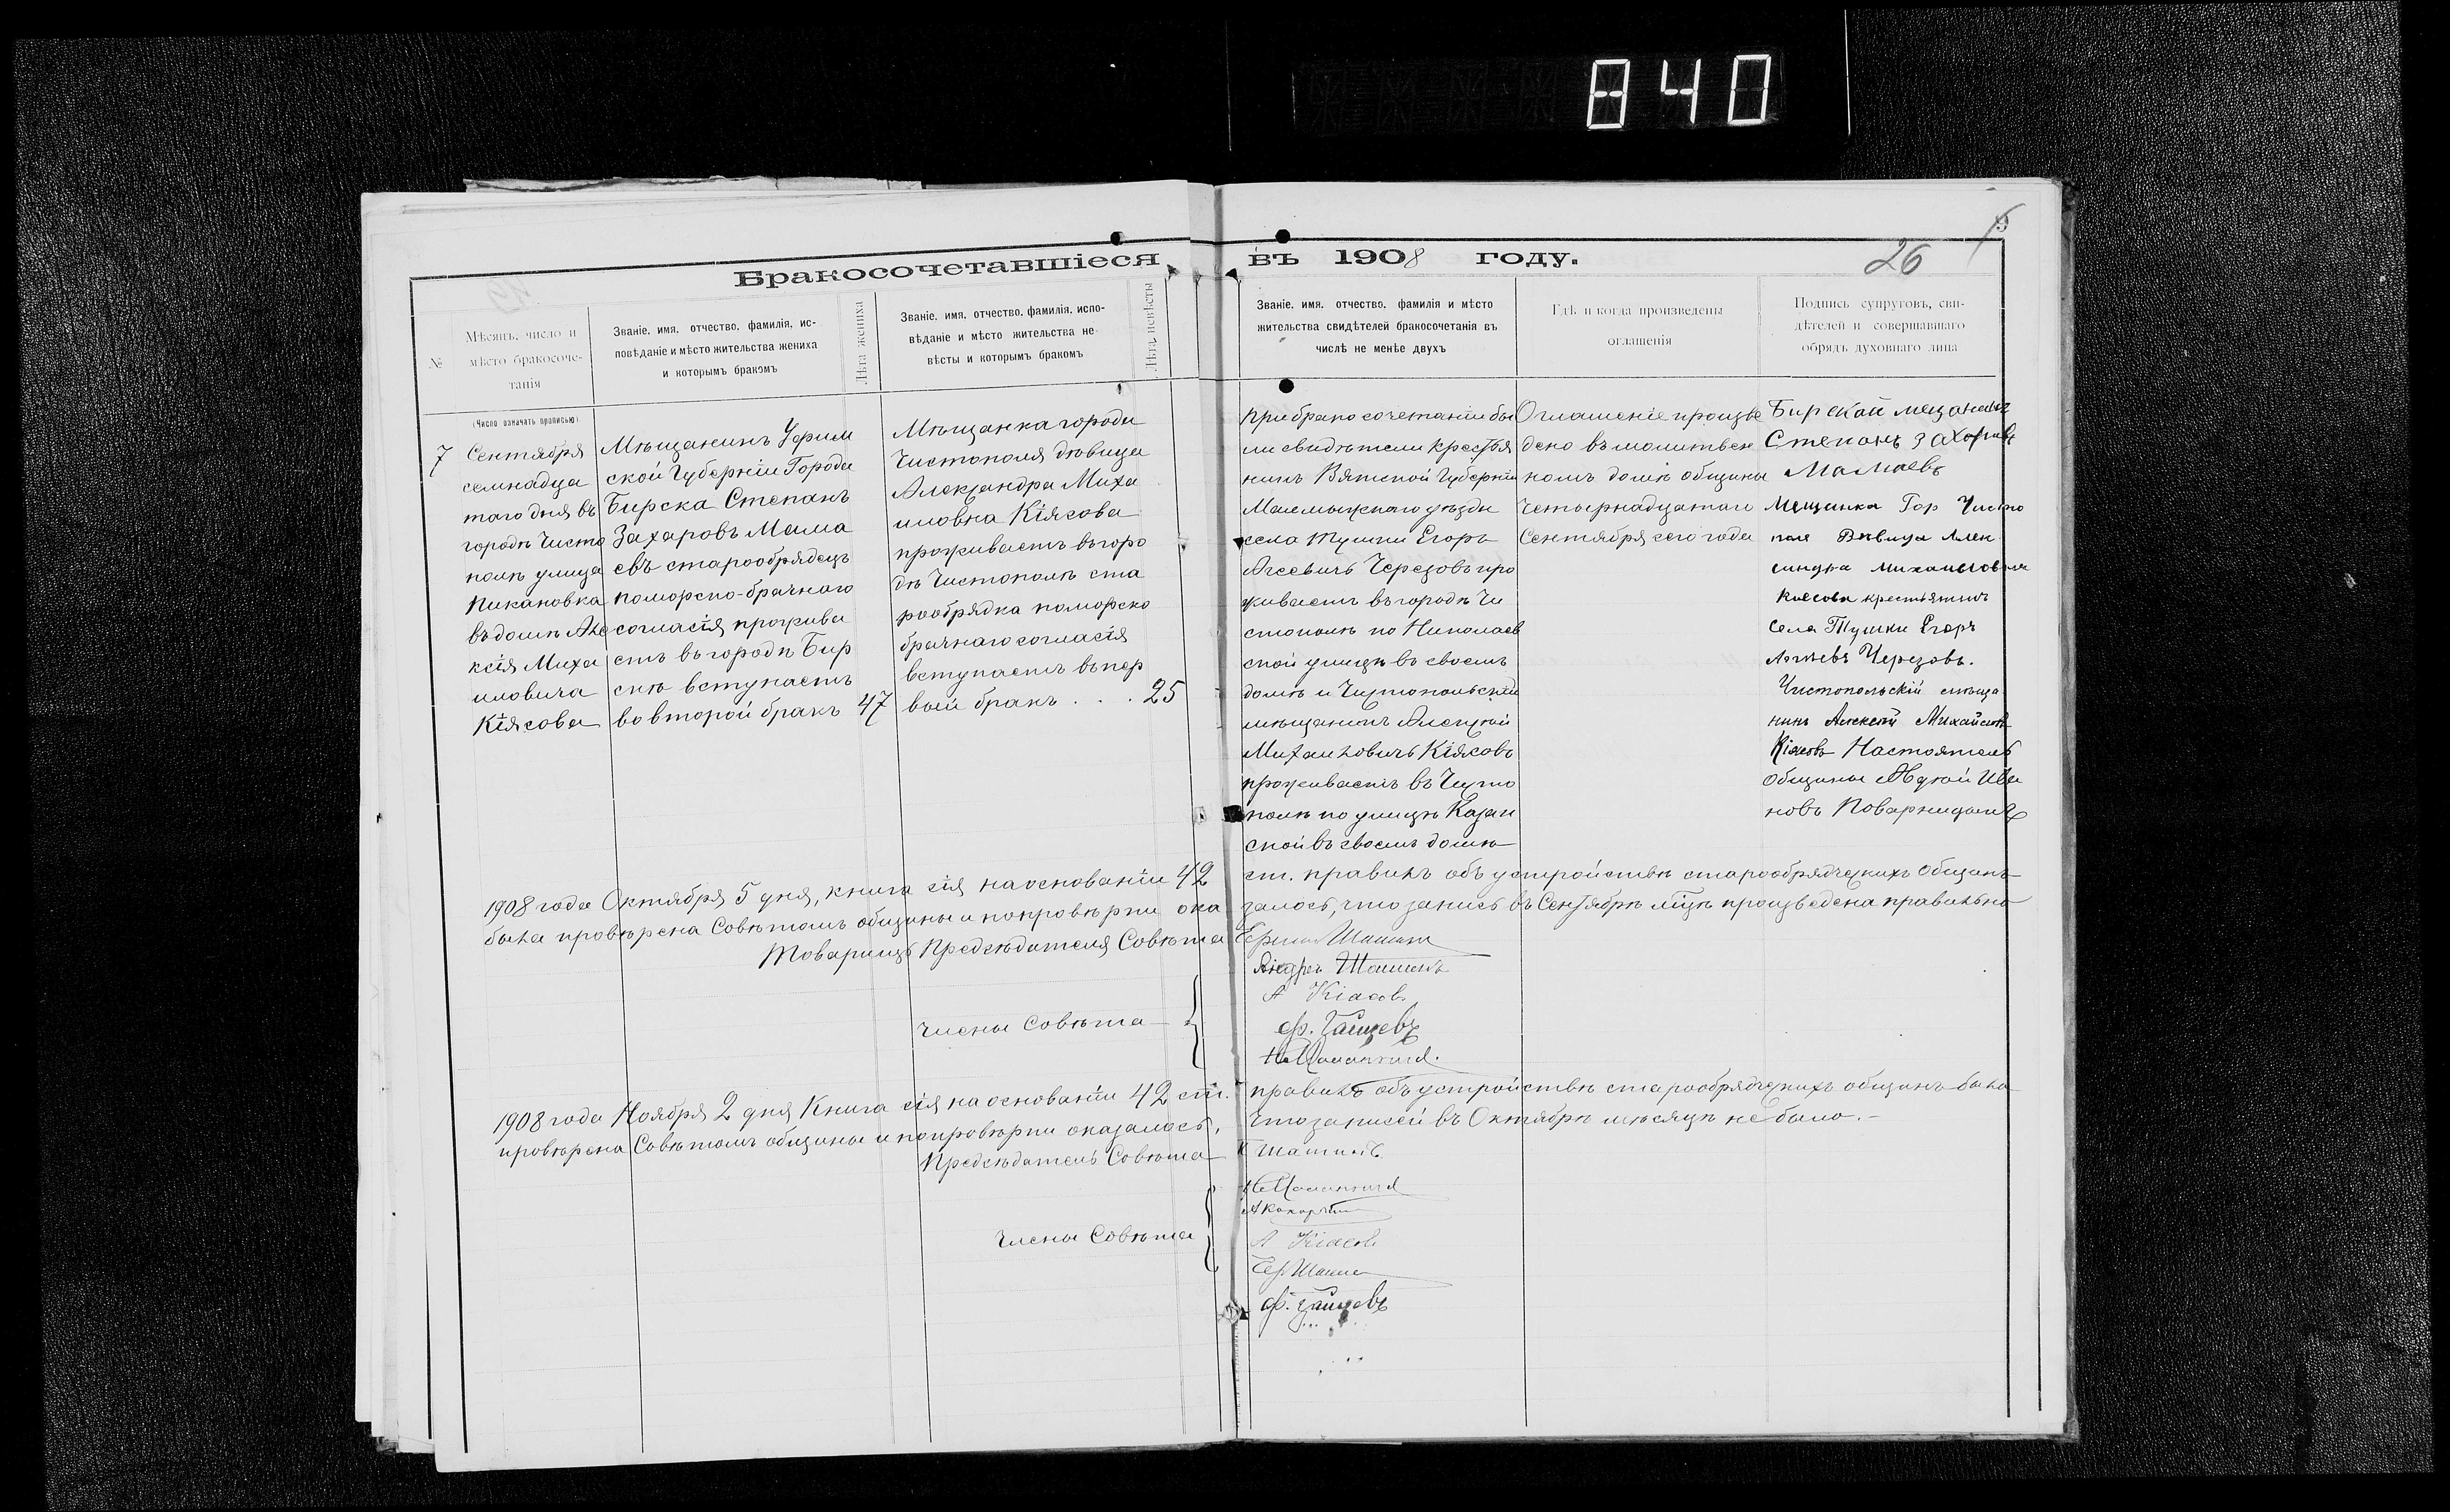 840
5
26
Бракосочетавшіеся въ 1908 году.
№
Мѣсяцъ, число и
мѣсто бракосоче-
танія
(Число означать прописью)
Званіе, имя, отчество, фамилія, ис-
повѣданіе и мѣсто жительства жениха
и которымъ бракомъ
Лѣта жениха
Званіе, имя, отчество, фамилія, испо-
вѣданіе и мѣсто жительства не-
вѣсты и которымъ бракомъ
Лѣта невѣсты
Званіе, имя, отчество, фамилія и мѣсто
жительства свидѣтелей бракосочетанія въ
числѣ не менѣе двухъ
Гдѣ и когда произведены
оглашенія
Подпись супруговъ, сви-
дѣтелей и совершавшаго
обрядъ духовнаго лица
7
Сентября
семнадца
таго дня въ
городѣ Чисто
полѣ улица
Пикановка
въ домѣ Але
ксія Миха
иловича
Кіясова
Мѣщанинъ Уфим
ской Губерніи Города
Бирска Степанъ
Захаровъ Мама
евъ старообрядецъ
поморско-брачнаго
согласія прожива
етъ въ городѣ Бир
скѣ вступаетъ
во второй бракъ
47
Мѣщанка города
Чистополя дѣвица
Александра Миха
иловна Кіясова
проживаетъ въ горо
дѣ Чистополѣ ста
рообрядка поморско
брачнаго согласія
вступаетъ въ пер
вый бракъ . . .
25
При бракосочетаніи бы
ли свидѣтели крестья
нинъ Вятской Губерніи
Малмыжскаго уѣзда
села Тушки Егоръ
Агеевичъ Черезовъ про
живаетъ въ городѣ Чи
стополѣ по Николаев
ской улицѣ въ своемъ
домѣ и Чистопольскій
мѣщанинъ Алексѣй
Михаиловичъ Кіясовъ
проживаетъ въ Чисто
полѣ по улицѣ Казан
ской въ своемъ домѣ
Оглашеніе произве
дено въ молитвен
номъ домѣ общины
Четырнадцатаго
Сентября сего года
Бирскай мещанинъ
Степанъ Захаровъ
Мамаевъ
Мещанка Гор Чисто
поля Девица Алек
сандра Михаиловна
Киесова крестьянинъ
Села Тушки Егоръ
Агѣевъ Черезовъ.
Чистопольскій мѣща
нинъ Алексѣй Михайловъ
Кіясовъ Настоятель
общины Авдѣй Ива
новъ
1908 года Октября 5 дня, книга сія на основаніи 42 ст. правилъ объ устройствѣ старообрядческихъ общинъ
была провѣрена Совѣтомъ общины и по провѣрки ока залось, что запись въ Сентябрѣ м͠цѣ произведена правильно
Товарищъ Предсѣдателя Совѣта
Члены Совѣта
А Кіасовъ
Ф. Зайцевъ
1908 года Ноября 2 дня Книга сія на основаніи 42 ст. правилъ объ устройствѣ старообрядческихъ общинъ была
провѣрена Совѣтомъ общины и по провѣрки оказалось, что записей въ Октябрѣ мѣсяцѣ не было. —
Предсѣдатель Совѣта
Члены Совѣта
А Кіасовъ
Ф. Зайцевъ